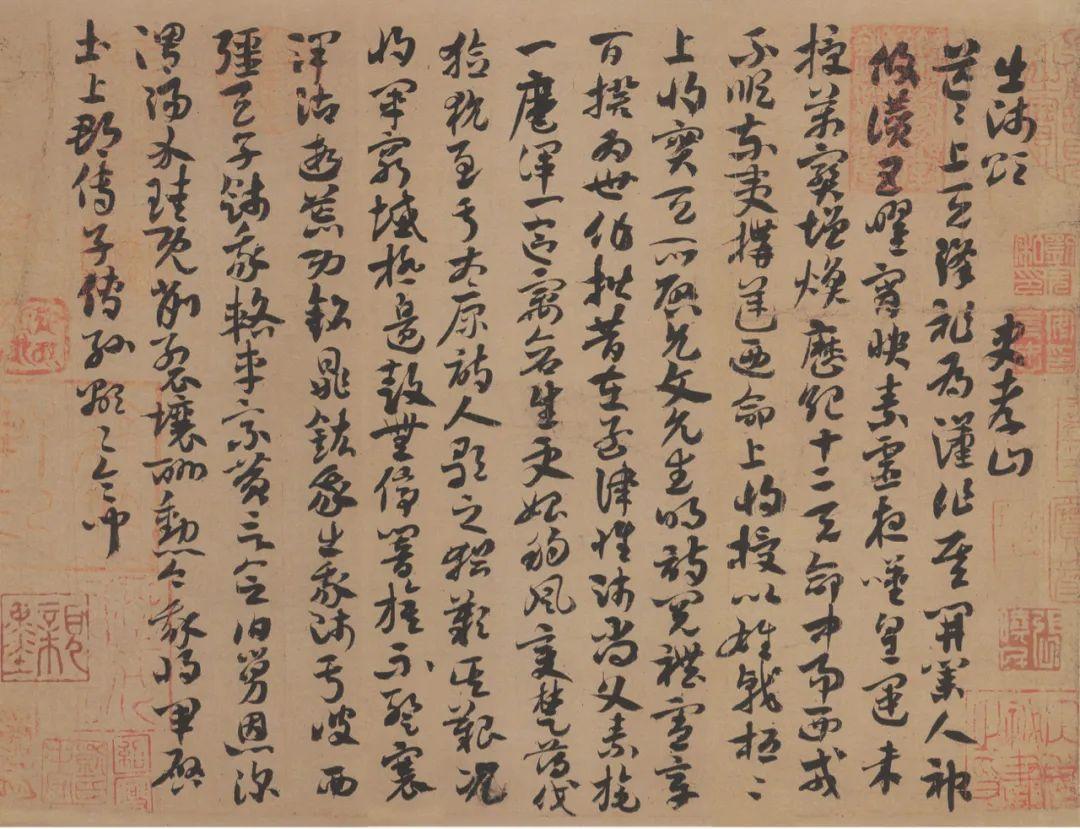 出師頌 史孝山
茫々上天降祚為漢作基開業人神
攸讚五曜宵映素靈夜嘆皇運未
授萬寶增煥歷紀十二天命中易西戎
不順東夷構逆乃命上將授以雄戟桓々
上將實天所啟允文允武明詩閱禮憲章
百揆為世作楷昔在孟津惟師尚父素旄
一麾渾一區宇蒼生更始朔風變楚薄伐
獫狁至于太原詩人歌之猶嘆其艱況
將軍窮域極邊鼓無停響旗不蹔褰
澤沾遐荒功銘鼎鉉我出我師于彼西
疆天子餞我輅車乘黃言念伯舅恩深
渭陽介珪既削裂壤酬勳今我將軍啟
土上郡傳子傳孫顯々令問